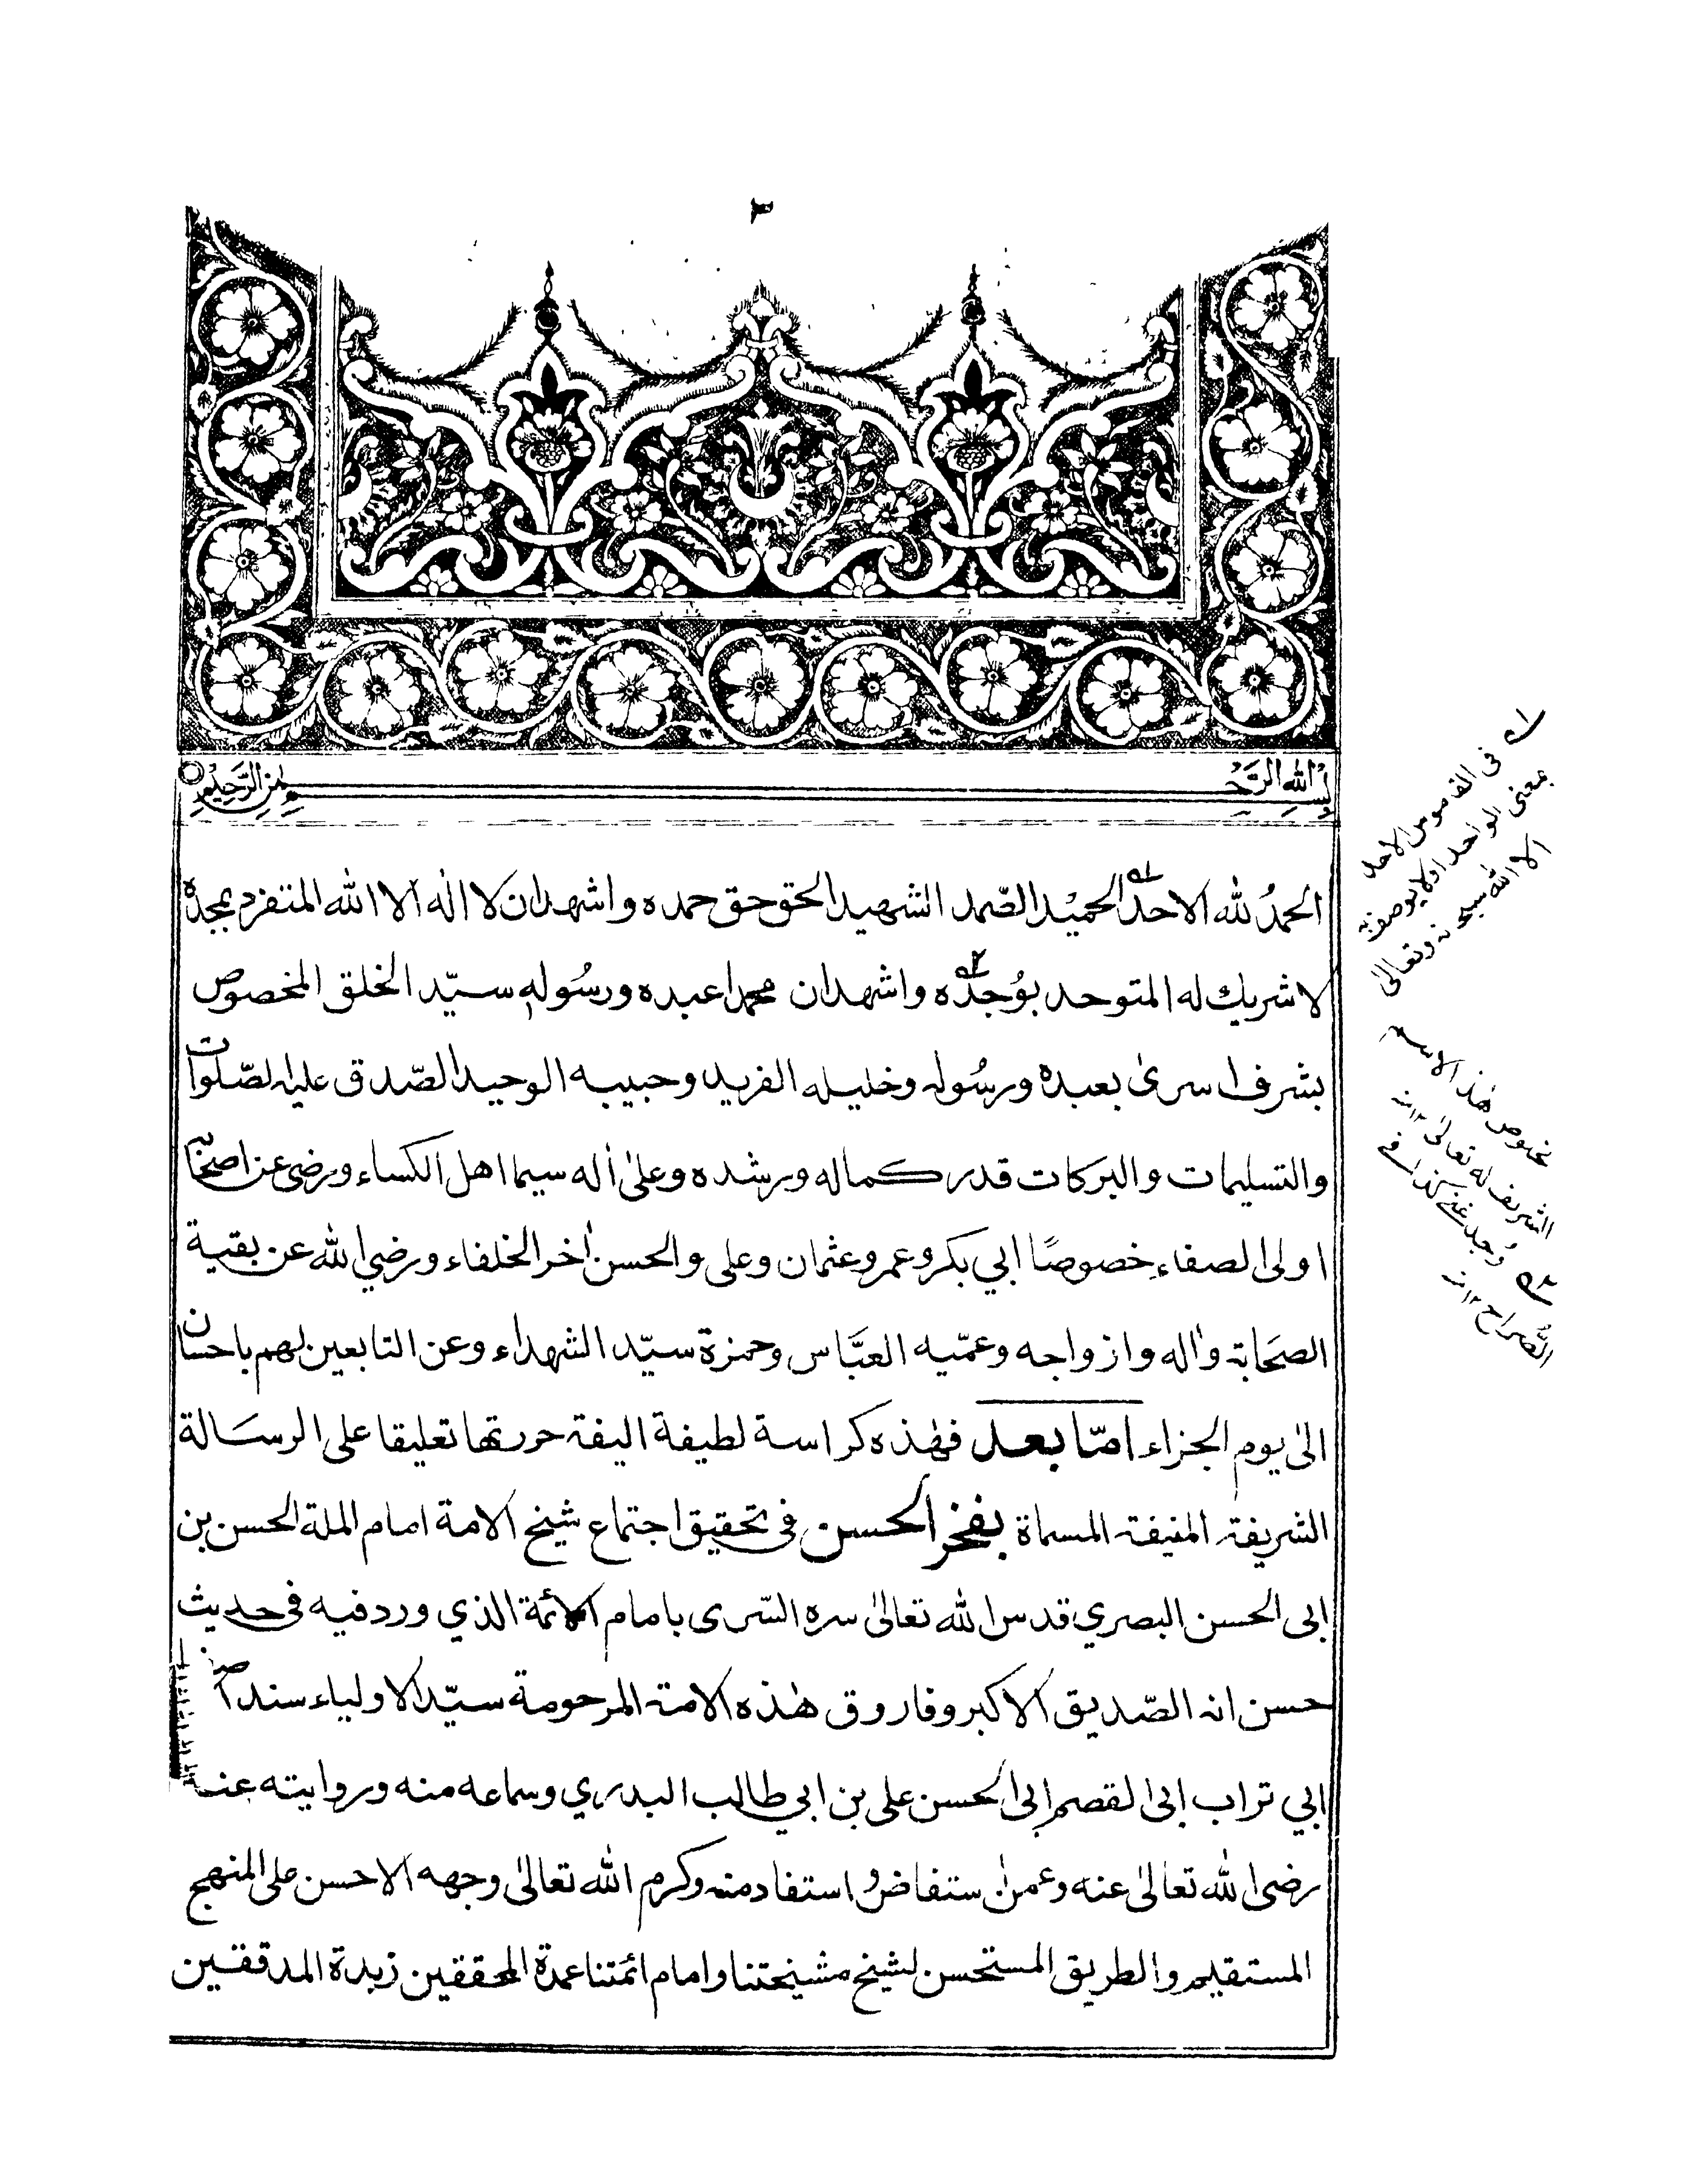 ٣
بسم الله الرحمن الرحيم
الحمدُ لله الاحد الحميد الصّمد الشهيد الحق حق حمده واشهد ان لا اله الا الله المتفرد بمجده
لا شريك له المتوحد بوُجده واشهد ان محمدا عبده ورسُوله سيّد الخلق المخصوص
بشرف اسرى بعبده ورسُوله وخليله الفريد وحبيبه الوحيد الصّدق عليه الصّلوات
والتسليمات والبركات قدر كماله ورشده وعلىٰ اٰله سيما اهل الكساء ورضى عن اصحابه
اولى الصفاء خصوصًا ابي بكر وعمر وعثمان وعلى والحسن اٰخر الخلفاء ورضي الله عن بقية
الصحَابة واٰله وازواجه وعمّيه العبَّاس وحمزة سيّد الشهداء وعن التابعين لهم باحسان
الىٰ يوم الجزاء امّا بعد فهٰذه كراسة لطيفة اليفة حررتها تعليقا على الرسَالة
الشريفة المنيفة المسماة بفخر الحسن فى تحقيق اجتماع شيخ الامة امام الملة الحسن بن
ابى الحسن البصري قدس الله تعالىٰ سره السّرى بامام الائمة الذي ورد فيه فى حديث
حسن انه الصّديق الاكبر وفاروق هٰذه الامة المرحومة سيّد الاولياء سند
ابي تراب ابى القصم ابى الحسن على بن ابي طالب البدري وسماعه منه وروايته عنه
رضى الله تعالىٰ عنه وعمن استفاض و استفاد منه وكرم الله تعالىٰ وجهه الاحسن على المنهج
المستقيم والطريق المستحسن لشيخ مشيختنا وامام ائمتنا عمدة المحققين زبدة المدققين
له فى القاموس الاحد
بمعنى الواحد او لا يوصف به
الا الله سبحانه وتعالىٰ
لخلوص هٰذا الاسم
الشريف له تعالىٰ ١٢ منه
٢ه وُجد غنى كذا فى
الصُّراح ١٢ منه